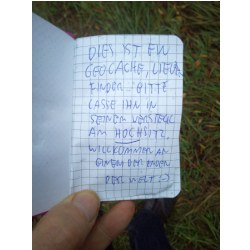 DIES IST EIN
GEOCACHE, LIEBER
FINDER - BITTE
LASSE IHN IN
SEINEM VERSTECK
AM HOCHSITZ.
WILLKOMMEN AN
EINEM DER ENDEN
DER WELT :-)